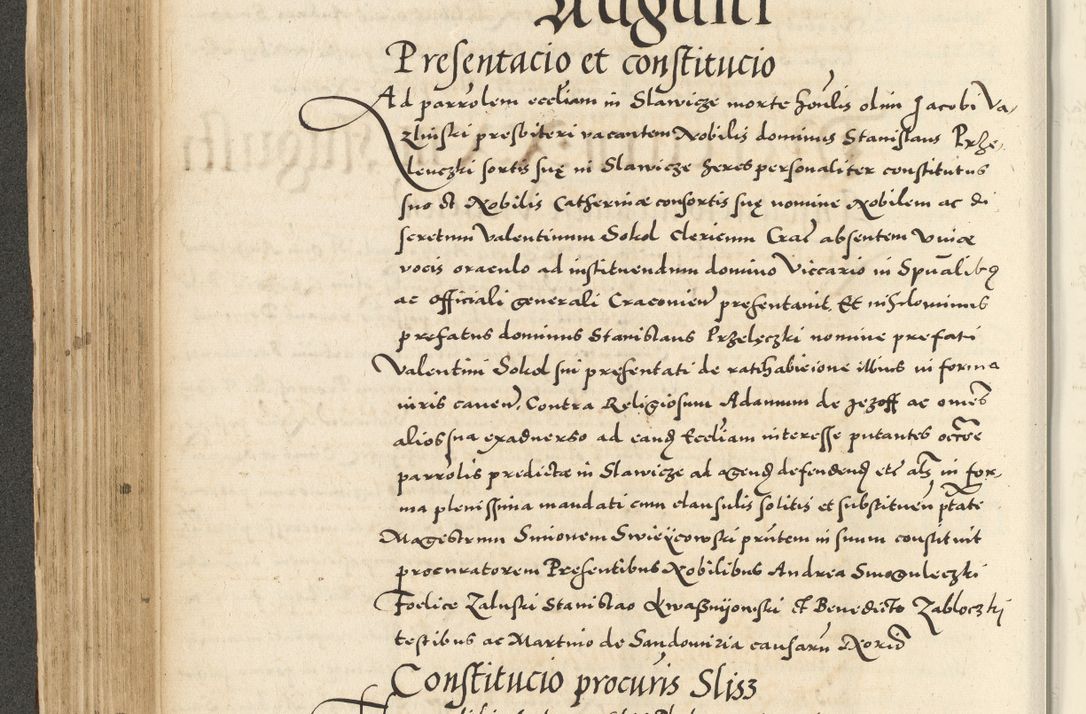 Augusti
Presentacio et constitucio
Ad parrolem eccliam in Slawicze morte honlis olim Jacobi Va
zlinski presbiteri vacantem Nobilis dominus Stanislaus Prze
lenczki sortis suę in Slawicze heres personaliter constitutus
suo et Nobilis Catherinæ consortis suę nomine Nobilem ac di
scretum Valentinum Sokol clericum Crac absentem vivæ
vocis oraculo ad instituendum domino Viccario in Spualibq
ac officiali generali Cracovien presentavit. Et nihilominus
prefatus dominus Stanislaus Przelęczki nomine prefati
Valentini Sokol sui presentati de ratihabicione illius in forma
iuris caven. Contra Religiosum Adamum de Jezoff ac omes
alios sua exadverso ad eand Eccliam interesse putantes occe
parrolis predictæ in Slawicze ad agend defendend etc als in for
ma plenissima mandati cum clausulis solitis et substituen ptate
Magestrum Simonem Swieÿcowski pntem in suum constituit
procuratorem Presentibus Nobilibus Andrea Smoguleczki
Foelice Zaluski Stanislao Kwasnijowski et Benedicto Zabloczkj
testibus ac Martino de Sandomiria causaru Norio
Constitucio procuris Slisz